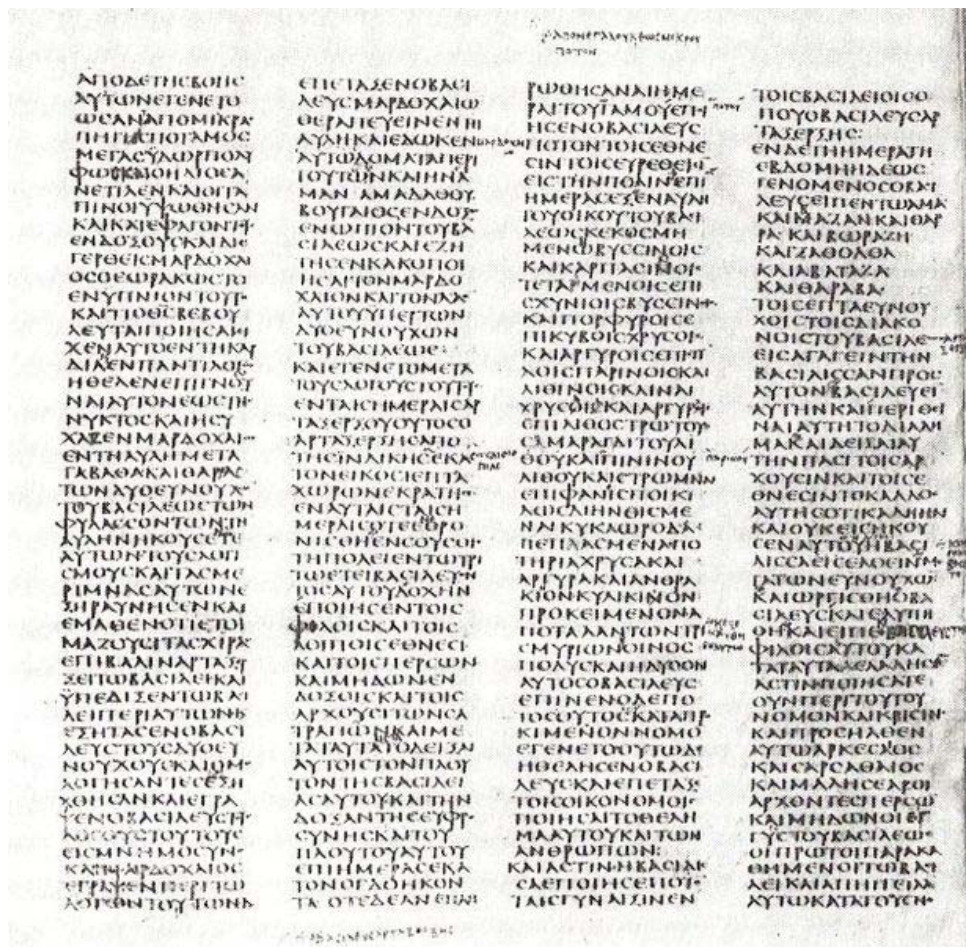 ΑΠΟΔΕΤΗCΒΟΗC
ΑΥΤΩΝΕΓΕΝΕΤΟ
ΩCΑΝΑΠΟΜΙΚΡΑ
ΠΗΓΗCΠΟΤΑΜΟC
ΜΕΓΑCΥΔΩΡΠΟΛΥ
ΦΩCΚΑΙΟΗΛΙΟCΑ
ΝΕΤΙΛΕΝΚΑΙΟΙΤΑ
ΠΙΝΟΙΥΨΩΘΗCΑΝ
ΚΑΙΚΑΤΕΦΑΓΟΝΤΟΥ
ΕΝΔΟΞΟΥCΚΑΙΔΙΕ
ΓΕΡΘΕΙCΜΑΡΔΟΧΑΙ
ΟCΟΕΩΡΑΚΩCΤΟ
ΕΝΥΠΝΙΟΝΤΟΥΤΟ
ΚΑΙΤΙΟΘCΒΕΒΟΥ
ΛΕΥΤΑΙΠΟΙΗCΑΙ
ΧΕΝΑΥΤΟΕΝΤΗΚΑΡ
ΔΙΑΕΝΠΑΝΤΙΛΟΓ
ΗΘΕΛΕΝΕΠΙΓΝΩ
ΝΑΙΑΥΤΟΝΕΩCΤΗ
ΝΥΚΤΟCΚΑΙΗCΥ
ΧΑΖΕΝΜΑΡΔΟΧΑΙ
ΕΝΤΗΑΥΛΗΜΕΤΑ
ΓΑΒΑΘΑΚΑΙΘΑΡΑC
ΤΩΝΔΥΟΕΥΝΟΥΧ
ΤΟΥΒΑCΙΛΕΩCΤΩΝ
ΦΥΛΑCCΟΝΤΩΝΤΗ
ΑΥΛΗΝΗΚΟΥCΕΤΕ
ΑΥΤΩΝΤΟΥCΛΟΓΙ
CΜΟΥCΚΑΙΤΑCΜΕ
ΡΙΜΝΑCΑΥΤΩΝΕ
ΞΗΡΑΥΝΗCΕΝΚΑΙ
ΕΜΑΘΕΝΟΤΙΕΤΟΙ
ΜΑΖΟΥCΙΤΑCΧΙΡΑ
ΕΠΙΒΑΛΙΝΑΡΤΑΞΕ
ΞΕΙΤΩΒΑCΙΛΕΙΚΑΙ
ΥΠΕΔΙΞΕΝΤΩΒΑCΙ
ΛΕΙΠΕΡΙΑΥΤΩΝΚΑΙ
ΕΞΗΤΑCΕΝΟΒΑCΙ
ΛΕΥCΤΟΥCΔΥΟΕΥ
ΝΟΥΧΟΥCΚΑΙΟΜΟ
ΛΟΓΗCΑΝΤΕCΕΞΗ
ΧΘΗCΑΝΚΑΙΕΓΡΑ
ΨΕΝΟΒΑCΙΛΕΥCΤΟΥ
ΛΟΓΟΥCΤΟΥΤΟΥC
ΕΙCΜΝΗΜΟCΥΝΟ
ΚΑΙΜΑΡΔΟΧΑΙΟC
ΕΓΡΑΨΕΝΠΕΡΙΤΩ
ΛΟΓΩΝΤΟΥΤΩΝΚΑΙ
ΕΠΕΤΑΞΕΝΟΒΑCΙ
ΛΕΥCΜΑΡΔΟΧΑΙΩ
ΘΕΡΑΠΕΥΕΙΝΕΝΤΗ
ΑΥΛΗΚΑΙΕΔΩΚΕΝ
ΑΥΤΩΔΟΜΑΤΑΠΕΡΙ
ΤΟΥΤΩΝΚΑΙΗΝΑ
ΜΑΝΑΜΑΔΑΘΟΥ
ΒΟΥΓΑΙΟCΕΝΔΟΞΟ
ΕΝΩΠΙΟΝΤΟΥΒΑ
CΙΛΕΩCΚΑΙΕΖΗ
ΤΗCΕΝΚΑΚΟΠΟΙΗ
CΑΙΤΟΝΜΑΡΔΟ
ΧΑΙΟΝΚΑΙΤΟΝΛΑΟ
ΑΥΤΟΥΥΠΕΡΤΩΝ
ΔΥΟΕΥΝΟΥΧΩΝ
ΤΟΥΒΑCΙΛΕΩC
ΚΑΙΕΓΕΝΕΤΟΜΕΤΑ
ΤΟΥCΛΟΓΟΥCΤΟΥΤΟΥ
ΕΝΤΑΙCΗΜΕΡΑΙCΑΡ
ΤΑΞΕΡΞΟΥΟΥΤΟCΟ
ΑΡΤΑΞΕΡΞΗCΑΠΟ
ΤΗCΙΝΔΙΚΗCΕΚΑ
ΤΟΝΕΙΚΟCΙΕΠΤΑ
ΧΩΡΩΝΕΚΡΑΤΗ
ΕΝΑΥΤΑΙCΤΑΙCΗ
ΜΕΡΑΙCΟΤΕΕΘΡΟ
ΝΙCΘΗΕΝCΟΥCΟΙC
ΤΗΠΟΛΕΙΕΝΤΩΤΡΙ
ΤΩΕΤΕΙΒΑCΙΛΕΥΟΝ
ΤΟCΑΥΤΟΥΔΟΧΗΝ
ΕΠΟΙΗCΕΝΤΟΙC
ΦΙΛΟΙCΚΑΙΤΟΙC
ΛΟΙΠΟΙCΕΘΝΕCΙ
ΚΑΙΤΟΙCΠΕΡCΩΝ
ΚΑΙΜΗΔΩΝΕΝ
ΔΟΞΟΙCΚΑΙΤΟΙC
ΑΡΧΟΥCΙΤΩΝCΑ
ΤΡΑΠΩΝΚΑΙΜΕ
ΤΑΤΑΥΤΑΤΟΔΕΙΞΑΙ
ΑΥΤΟΙCΤΟΝΠΛΟΥ
ΤΟΝΤΗCΒΑCΙΛΕΙ
ΑCΑΥΤΟΥΚΑΙΤΗΝ
ΔΟΞΑΝΤΗCΕΥΦΡΟ
CΥΝΗCΚΑΙΤΟΥ
ΠΛΟΥΤΟΥΑΥΤΟΥ
ΕΠΙΗΜΕΡΑCΕΚΑ
ΤΟΝΟΓΔΟΗΚΟΝ
ΤΑΟΤΕΔΕΑΝΕΠΛΗ
ΡΩΘΗCΑΝΑΙΗΜΕ
ΡΑΙΤΟΥΓΑΜΟΥΕΠΟΙ
ΗCΕΝΟΒΑCΙΛΕΥC
ΠΟΤΟΝΤΟΙCΕΘΝΕ
CΙΝΤΟΙCΕΥΡΕΘΕΙCΙ
ΕΙCΤΗΝΠΟΛΙΝΕΠΙ
ΗΜΕΡΑCΕΞΕΝΑΥΛΗ
ΤΟΥΟΙΚΟΥΤΟΥΒΑCΙ
ΛΕΩCΚΕΚΟCΜΗ
ΜΕΝΩΒΥCCΙΝΟΙC
ΚΑΙΚΑΡΠΑCΙΝΟΙC
ΤΕΤΑΜΕΝΟΙCΕΠΙ
CΧΥΝΙΟΙCΒΥCCΙΝΟΙ
ΚΑΙΠΟΡΦΥΡΟΙCΕ
ΠΙΚΥΒΟΙCΧΡΥCΟΙC
ΚΑΙΑΡΓΥΡΟΙCΕΠΙCΤΥ
ΛΟΙCΠΑΡΙΝΟΙCΚΑΙ
ΛΙΘΙΝΟΙCΚΛΙΝΑΙ
ΧΡΥCΑΙΚΑΙΑΡΓΥΡΑΙ
ΕΠΙΛΙΘΟCΤΡΩΤΟΥ
CΜΑΡΑΓΔΙΤΟΥΛΙ
ΘΟΥΚΑΙΠΙΝΙΝΟΥ
ΛΙΘΟΥΚΑΙCΤΡΩΜΝΗ
ΕΠΙΦΑΝΙCΠΟΙΚΙ
ΛΩCΔΙΗΝΘΙCΜΕ
ΝΑΙΚΥΚΛΩΡΟΔΑ
ΠΕΠΛΑCΜΕΝΑΠΟ
ΤΗΡΙΑΧΡΥCΑΚΑΙ
ΑΡΓΥΡΑΚΑΙΑΝΘΡΑ
ΚΙΟΝΚΥΛΙΚΙΝΟΝ
ΠΡΟΚΕΙΜΕΝΟΝΑ
ΠΟΤΑΛΑΝΤΩΝΤΡΙ
CΜΥΡΙΩΝΟΙΝΟC
ΠΟΛΥCΚΑΙΗΔΥCΟΝ
ΑΥΤΟCΟΒΑCΙΛΕΥC
ΕΠΙΝΕΝΟΔΕΠΟ
ΤΟCΟΥΤΟCΚΑΤΑΠΡΟ
ΚΙΜΕΝΟΝΝΟΜΟ
ΕΓΕΝΕΤΟΟΥΤΩCΔΕ
ΗΘΕΛΗCΕΝΟΒΑCΙ
ΛΕΥCΚΑΙΕΠΕΤΑΞΕ
ΤΟΙCΟΙΚΟΝΟΜΟΙC
ΠΟΙΗCΑΙΤΟΘΕΛΗ
ΜΑΑΥΤΟΥΚΑΙΤΩΝ
ΑΝΘΡΩΠΩΝ:
ΚΑΙΑCΤΙΝΗΒΑCΙΛΙC
CΑΕΠΟΙΗCΕΠΟΤΟ
ΤΑΙCΓΥΝΑΙΞΙΝΕΝ
ΤΟΙCΒΑCΙΛΕΙΟΙCΟ
ΠΟΥΟΒΑCΙΛΕΥCΑΡ
ΤΑΞΕΡΞΗC:
ΕΝΔΕΤΗΗΜΕΡΑΤΗ
ΕΒΔΟΜΗΗΔΕΩC
ΓΕΝΟΜΕΝΟCΟΒΑCΙ
ΛΕΥCΕΙΠΕΝΤΩΑΜΑ
ΚΑΙΜΑΖΑΝΚΑΙΘΑΡ
ΡΑΚΑΙΒΩΡΑΖΗ
ΚΑΙΖΑΘΟΛΘΑ
ΚΑΙΑΒΑΤΑΖΑ
ΚΑΙΘΑΡΑΒΑ
ΤΟΙCΕΠΤΑΕΥΝΟΥ
ΧΟΙCΤΟΙCΔΙΑΚΟ
ΝΟΙCΤΟΥΒΑCΙΛΕ
ΕΙCΑΓΑΓΕΙΝΤΗΝ
ΒΑCΙΛΙCCΑΝΠΡΟC
ΑΥΤΟΝΒΑCΙΛΕΥΕΙ
ΑΥΤΗΝΚΑΙΠΕΡΙΘΕΙ
ΝΑΙΑΥΤΗΤΟΔΙΑΔΗ
ΜΑΚΑΙΔΕΙΞΑΙΑΥ
ΤΗΝΠΑCΙΤΟΙCΑΡ
ΧΟΥCΙΝΚΑΙΤΟΙCΕ
ΘΝΕCΙΝΤΟΚΑΛΛΟC
ΑΥΤΗCΟΤΙΚΑΛΗΗΝ
ΚΑΙΟΥΚΕΙCΗΚΟΥ
CΕΝΑΥΤΟΥΗΒΑCΙ
ΛΙCCΑΕΙCΕΛΘΕΙΝ
ΓΑΤΩΝΕΥΝΟΥΧΩ
ΚΑΙΩΡΓΙCΘΗΟΒΑ
CΙΛΕΥCΚΑΙΕΛΥΠΗ
ΘΗΚΑΙΕΙΠΕ
ΦΙΛΟΙCΑΥΤΟΥΚΑ
ΤΑΤΑΥΤΑΕΛΑΛΗCΕ
ΑCΤΙΝΠΟΙΗCΑΤΕ
ΟΥΝΠΕΡΙΤΟΥΤΟΥ
ΝΟΜΟΝΚΑΙΚΡΙCΙΝ
ΚΑΙΠΡΟCΗΛΘΕΝ
ΑΥΤΩΑΡΚΕCΑΟC
ΚΑΙCΑΡCΑΘΑΙΟC
ΚΑΙΜΑΛΗCΕΑΡΟΙ
ΑΡΧΟΝΤΕCΠΕΡCΩ
ΚΑΙΜΗΔΩΝΟΙΕΓ
ΓΥCΤΟΥΒΑCΙΛΕΩC
ΟΙΠΡΩΤΟΙΠΑΡΑΚΑ
ΘΗΜΕΝΟΙΤΩΒΑCΙ
ΛΕΙΚΑΙΑΠΗΓΓΕΙΛΑ
ΑΥΤΩΚΑΤΑΤΟΥCΝΟ